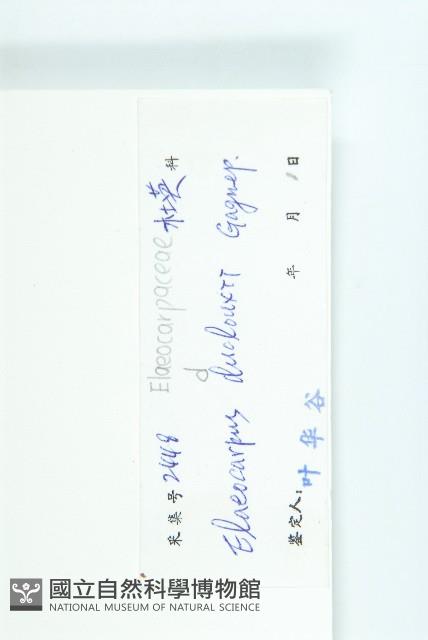 采集号 2448 Elaeocarpaceae 杜英 科
d
Elaeocarpus duclouxii Gagnep.
鉴定人: 叶华谷 年 月 日
國立自然科學博物館
NATIONAL MUSEUM OF NATURAL SCIENCE